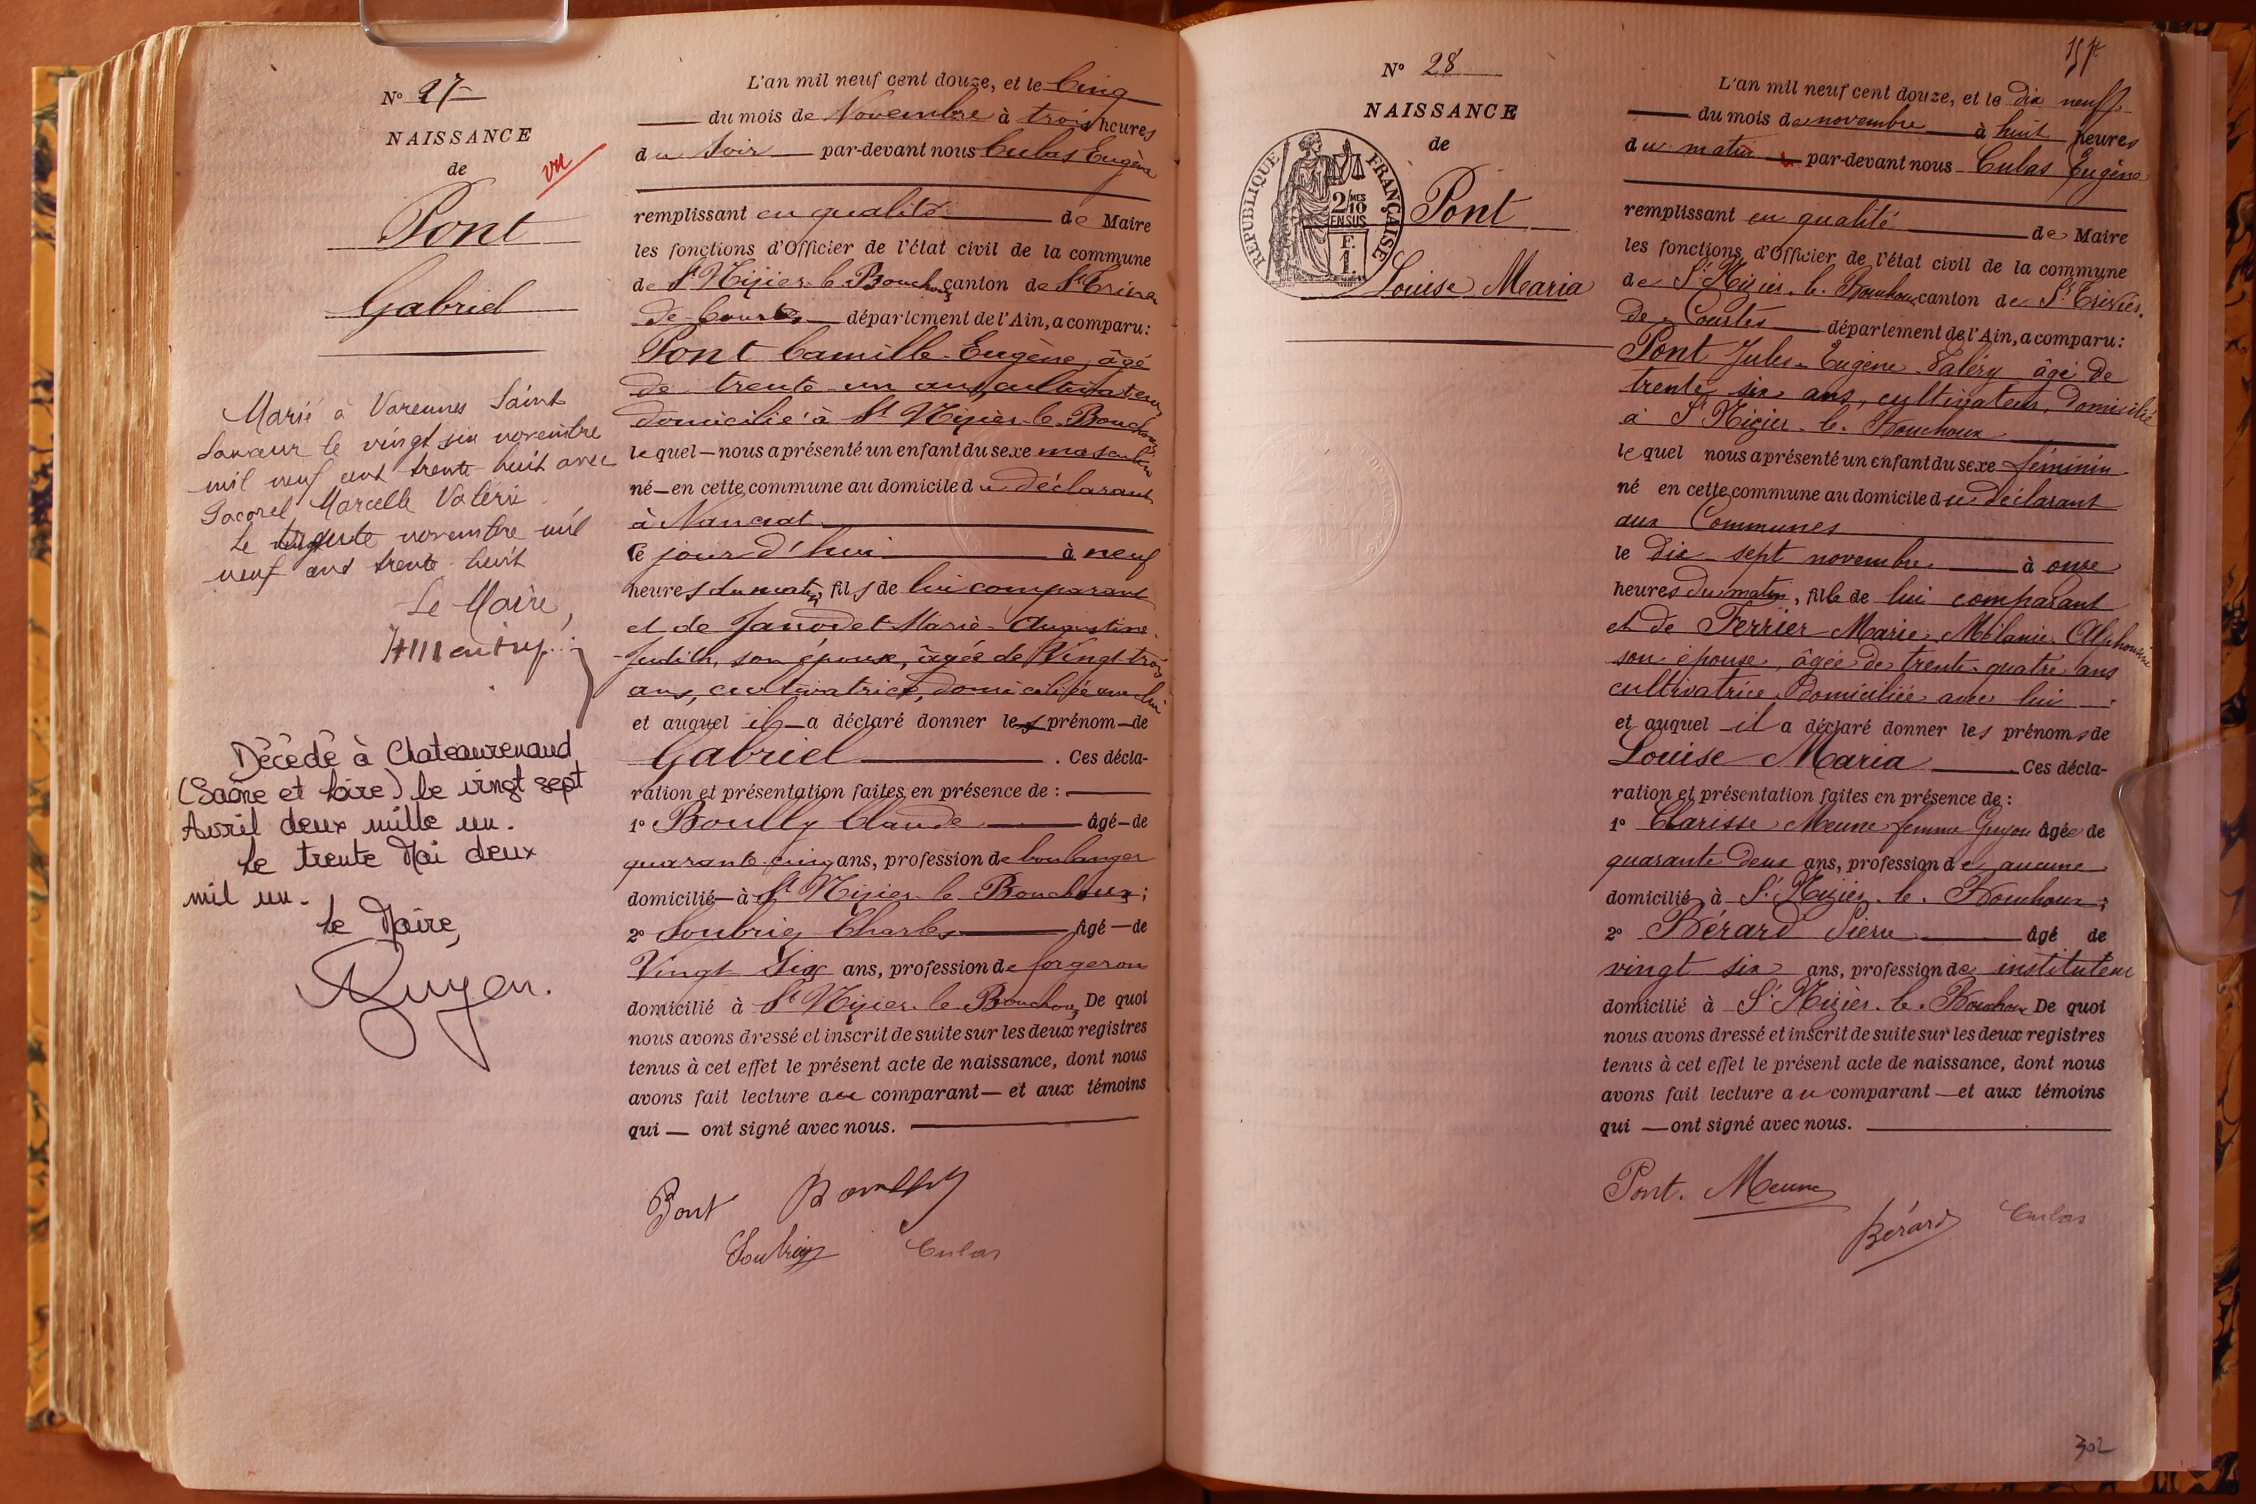 N° 27
NAISSANCE
de
vu
Pont
Gabriel
Marié à Varennes Saint
Sauveur le vingt six novembre
mil neuf cent trente-huit avec
Marcelle Valérie
Le trente novembre mil
neuf cent trente huit
Le Maire,
Décédé à Chateaurenaud
(Saône et Loire) le vingt sept
Avril deux mille un.
Le trente Mai deux
mil un.
Le Maire,
L'an mil neuf cent douze, et le Cinq
du mois de Novembre à trois heures
du Soir par-devant nous Culas Eugène
remplissant en qualité de Maire
les fonctions d'Officier de l'état civil de la commune
de St Nizier-le-Bouchoux canton de St Trivier
de Courtes département de l'Ain, a comparu:
Pont Camille-Eugène, âgé
de trente-un ans, cultivateur,
domicilié à St Nizier-le-Bouchoux
lequel nous a présenté un enfant du sexe masculin
né en cette commune au domicile du déclarant
à Nancrat
Ce jour d'hui à neuf
heures du matin, fils de lui comparant
et de Janodet Marie-Augustine-
Judith, son épouse, âgée de Vingt-trois
ans, cultivatrice, domiciliée avec lui
et auquel il a déclaré donner les prénom de
Gabriel. Ces décla-
ration et présentation faites en présence de :
1° Boully Claude âgé de
quarante-cinq ans, profession de boulanger
domicilié à St Nizier-le-Bouchoux;
2° Soubrier Charles âgé de
Vingt Six ans, profession de forgeron
domicilié à St Nizier-le-Bouchoux De quoi
nous avons dressé et inscrit de suite sur les deux registres
tenus à cet effet le présent acte de naissance, dont nous
avons fait lecture au comparant et aux témoins
qui ont signé avec nous.
Pont Boully
Culas
N° 28
NAISSANCE
de
RÉPUBLIQUE FRANÇAISE
2/MES
10
EN SUS
F.
1.
Pont
Louise Maria
L'an mil neuf cent douze, et le dix neuf
du mois de novembre à huit heures
du matin par-devant nous Culas Eugène
remplissant en qualité de Maire
les fonctions d'Officier de l'état civil de la commune
de St Nizier-le-Bouchoux canton de St Trivier-
de-Courtes département de l'Ain, a comparu:
Pont Jules-Eugène-Valéry âgé de
trente six ans, cultivateur, domicilié
à St Nizier-le-Bouchoux
lequel nous a présenté un enfant du sexe féminin
né en cette commune au domicile du déclarant
aux Communes
le dix-sept novembre à onze
heures du matin, fille de lui comparant
et de Ferrier Marie Mélanie Alphonsine
son épouse, âgée de trente-quatre ans
cultivatrice domiciliée avec lui
et auquel il a déclaré donner les prénoms de
Louise Maria Ces décla-
ration et présentation faites en présence de :
1° Clarisse Meune femme Guyon âgée de
quarante deux ans, profession de aucune
domicilié à St Nizier-le-Bouchoux;
2° Bérard Pierre âgé de
vingt six ans, profession de instituteur
domicilié à St Nizier-le-Bouchoux De quoi
nous avons dressé et inscrit de suite sur les deux registres
tenus à cet effet le présent acte de naissance, dont nous
avons fait lecture au comparant et aux témoins
qui ont signé avec nous.
Pont. Meune
Bérard Culas
302